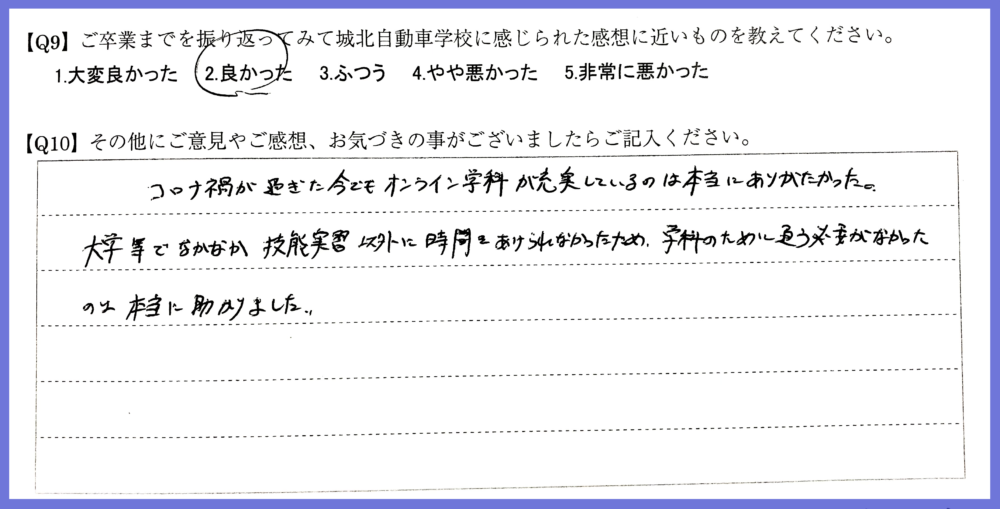 【Q9】ご卒業までを振り返ってみて城北自動車学校に感じられた感想に近いものを教えてください。
1.大変良かった 2.良かった 3.ふつう 4.やや悪かった 5.非常に悪かった
【Q10】その他にご意見やご感想、お気づきの事がございましたらご記入ください。
コロナ禍が過ぎた今でもオンライン学科が充実しているのは本当にありがたかった。
大学等でなかなか技能実習以外に時間をあけられなかったため、学科のために通う必要がなかった
のは本当に助かりました。